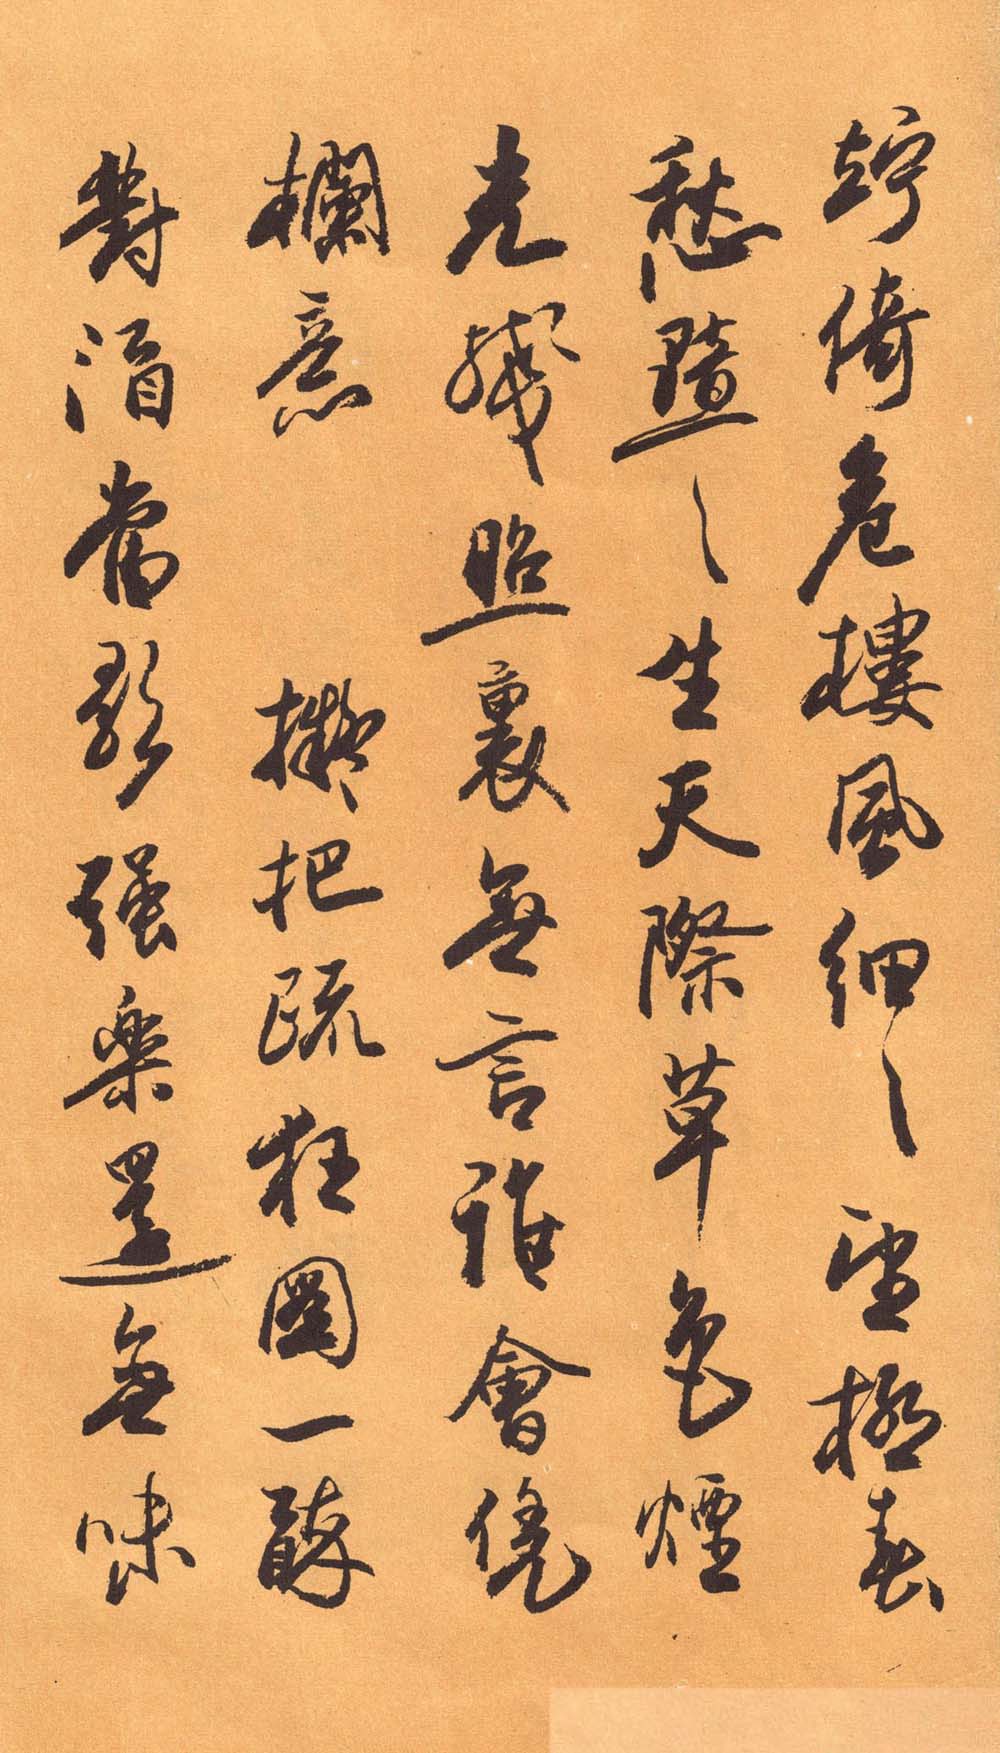 竚倚危樓風細〻望極春
愁黯〻生天際草色煙
光殘照裏無言誰會凭
欄意擬把疏狂圖一醉
對酒當歌強樂還無味